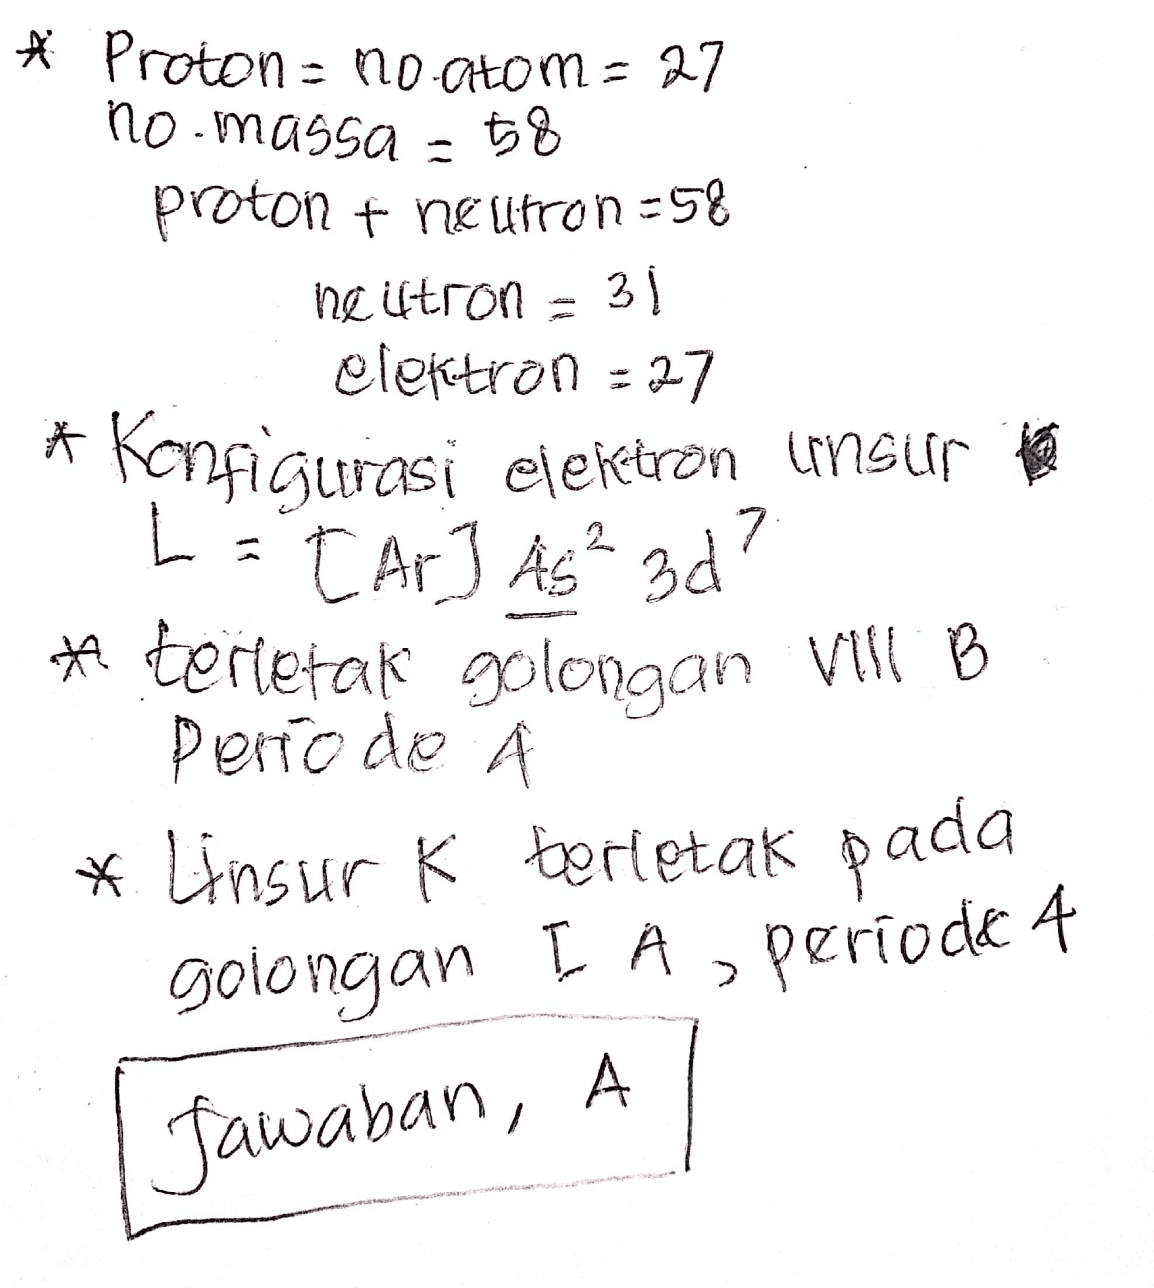 * Proton = no.atom = 27
no.massa = 58
proton + neutron = 58
neutron = 31
elektron = 27
* Konfigurasi elektron unsur
L = [Ar] 4s² 3d⁷
* terletak golongan VIII B
Periode 4
* Unsur K terletak pada
golongan I A, periode 4
Jawaban, A